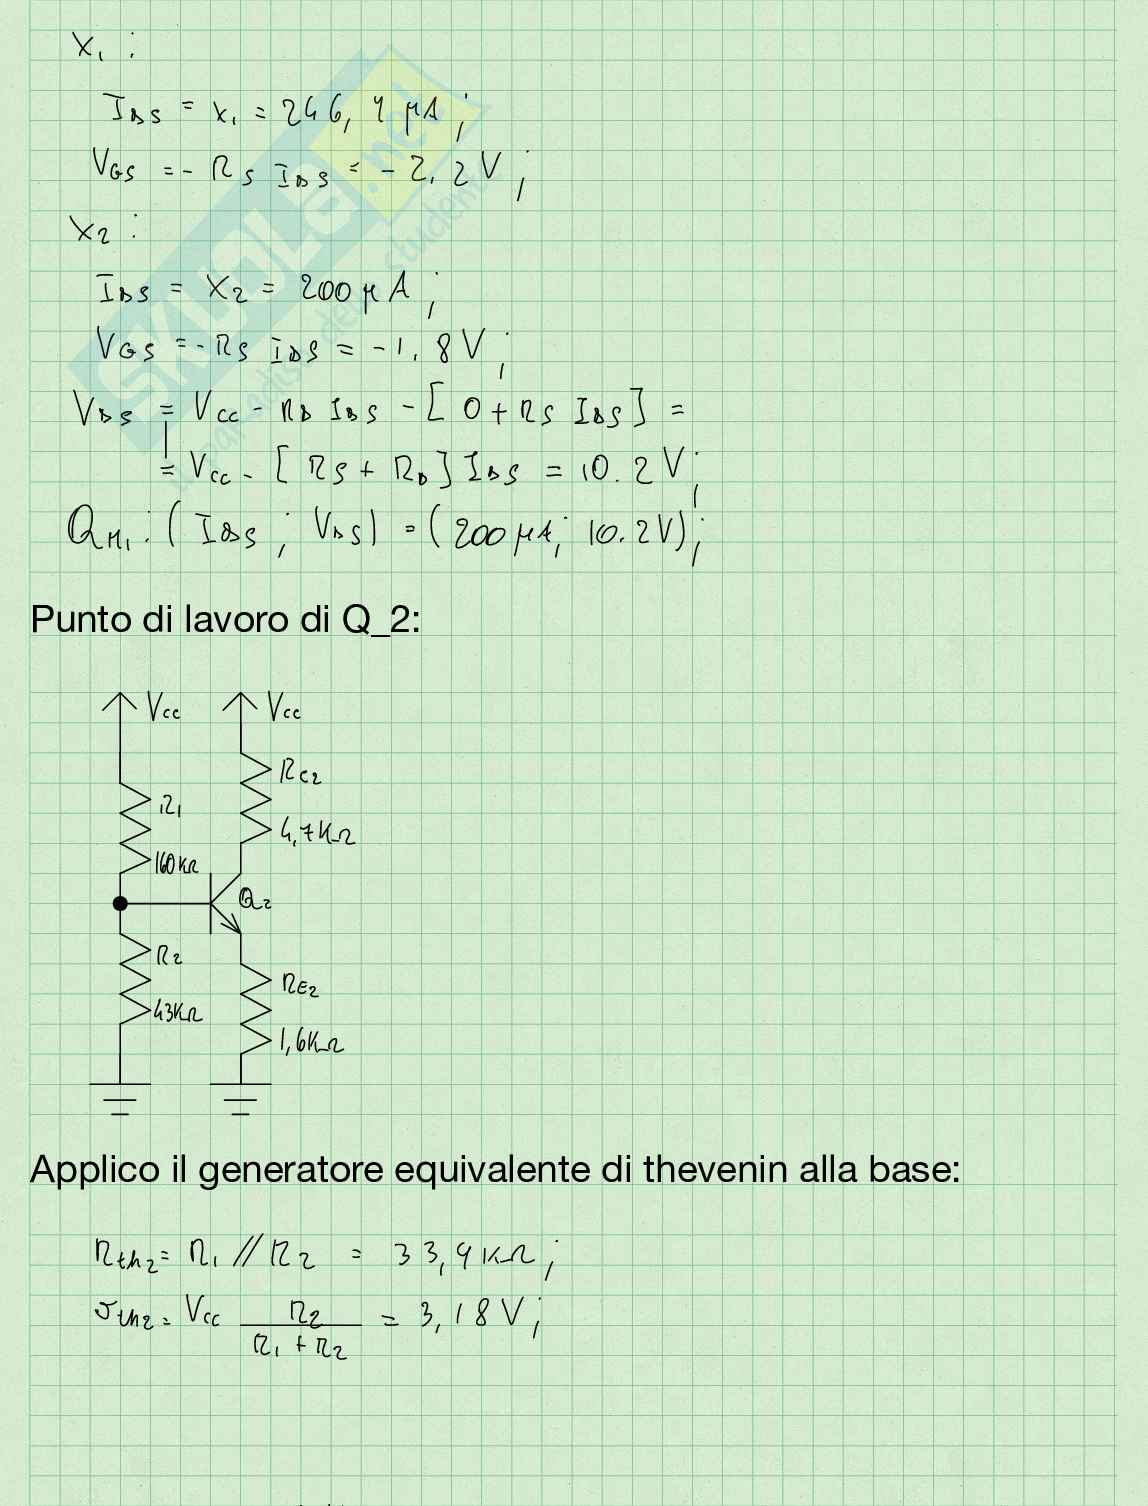 X₁ :
I_DS = x₁ = 246,9 μA ;
V_GS = - R_S I_DS = - 2.2V ;
X₂ :
I_DS = X₂ = 200 μA ;
V_GS = - R_S I_DS = -1.8V ;
V_DS = V_CC - R_D I_DS - [ 0 + R_S I_DS ] =
= V_CC - [ R_S + R_D ] I_DS = 10.2V ;
Q_M1 : ( I_DS ; V_DS ) = ( 200 μA ; 10.2V ) ;
Punto di lavoro di Q_2:
V_CC V_CC
R_C2
R₁ 4,7KΩ
160KΩ
Q₂
R₂ R_E2
43KΩ 1,6KΩ
Applico il generatore equivalente di thevenin alla base:
R_th2 = R₁ // R₂ = 33,9 KΩ ;
v_th2 = V_CC R₂ / (R₁ + R₂) = 3,18V ;
SKUOLA.net